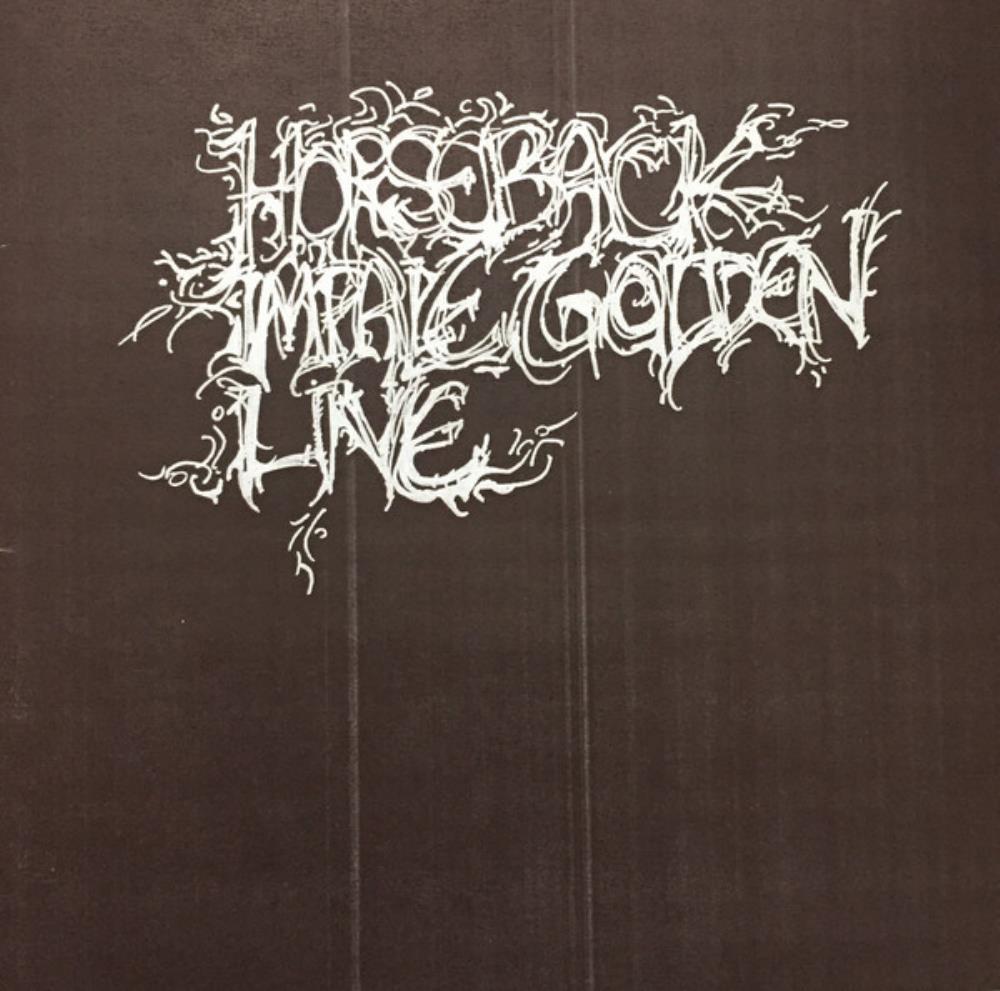 HORSEBACK
IMPALE GOLDEN
LIVE